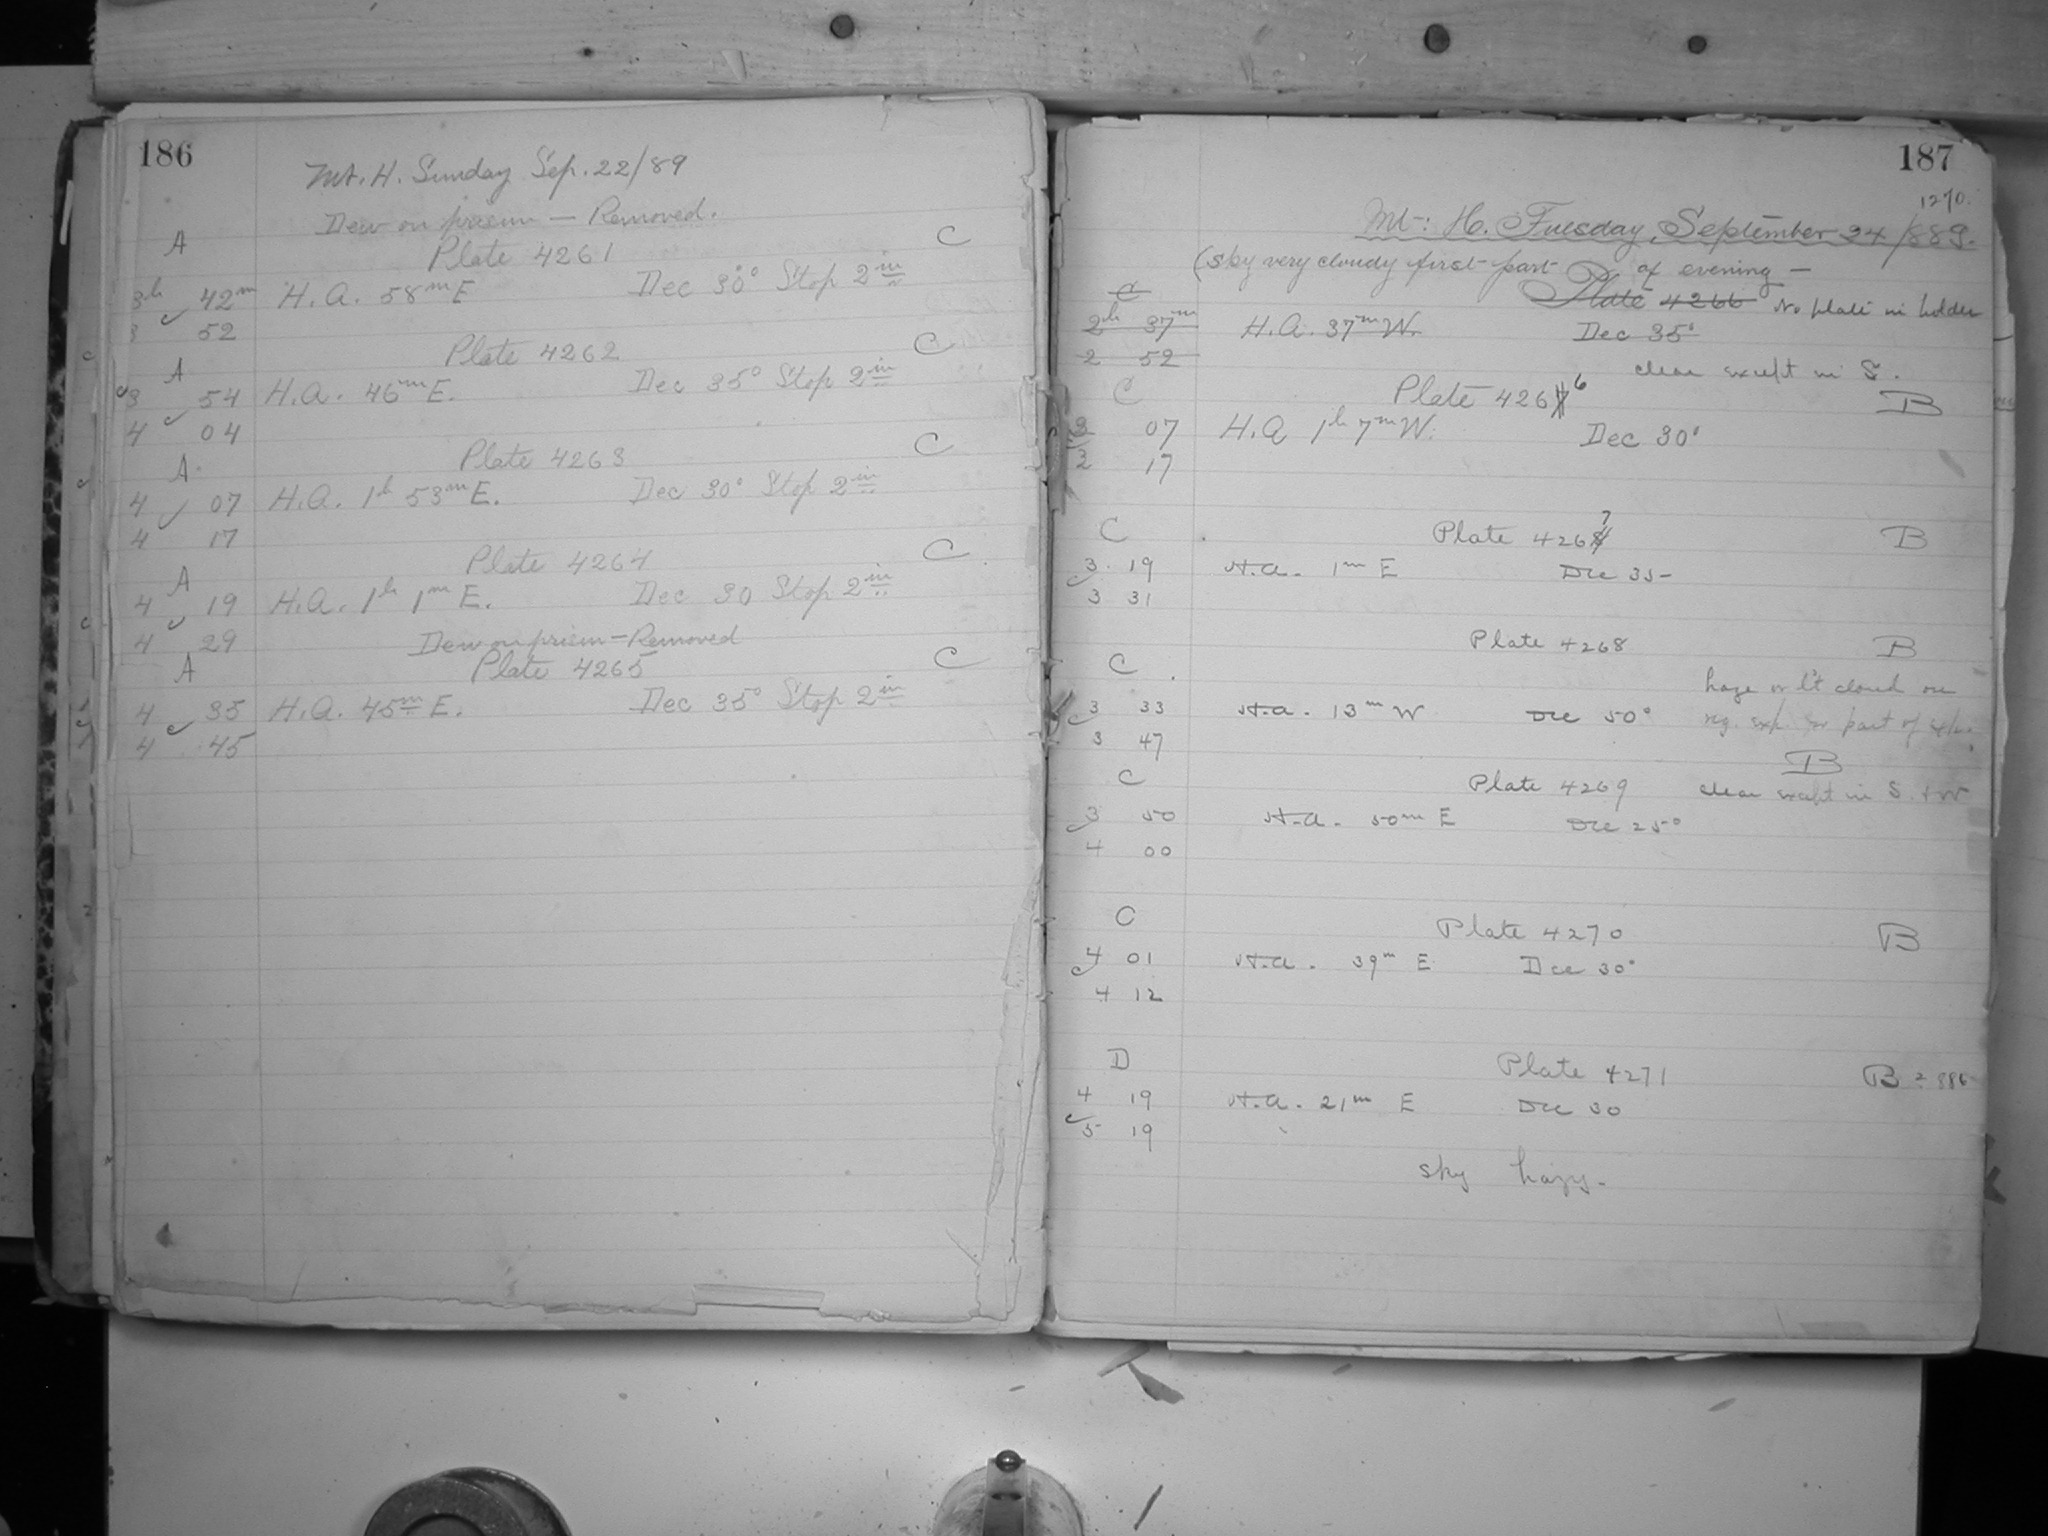 186
Mt. H. Sunday Sep. 22/89
Dew on prism — Removed.
A Plate 4261 C
3h 42m H.A. 58m E Dec 30° Stop 2in
3 52
Plate 4262 C
A
3 54 H.A. 46m E. Dec 35° Stop 2in
4 04
Plate 4263 C
A
4 07 H.A. 1h 53m E. Dec 30° Stop 2in
4 17
Plate 4264 C
A
4 19 H.A. 1h 1m E. Dec 30 Stop 2in
4 29 Dew on prism — Removed
A Plate 4265 C
4 35 H.A. 45m E. Dec 35° Stop 2in
4 45
187
1270.
Mt. H. Tuesday, September 24/889.
(Sky very cloudy first part of evening —
C Plate 4266 No plate in holder
2h 37m H.A. 37m W. Dec 35°
2 52
clear except in S.
C Plate 4266 B
3 07 H.A 1h 7m W. Dec 30°
3 17
C Plate 4267 B
3 19 H.A. 1m E Dec 35
3 31
Plate 4268 B
C
haze or lt cloud on
3 33 H.A. 13m W Dec 50° reg. exp. for part of exp.
3 47
B
C Plate 4269 clear except in S. + W
3 50 H.A. 50m E Dec 25°
4 00
C Plate 4270 B
4 01 H.A. 39m E Dec 30°
4 12
D Plate 4271 B 2886
4 19 H.A. 21m E Dec 30
5 19
sky hazy.